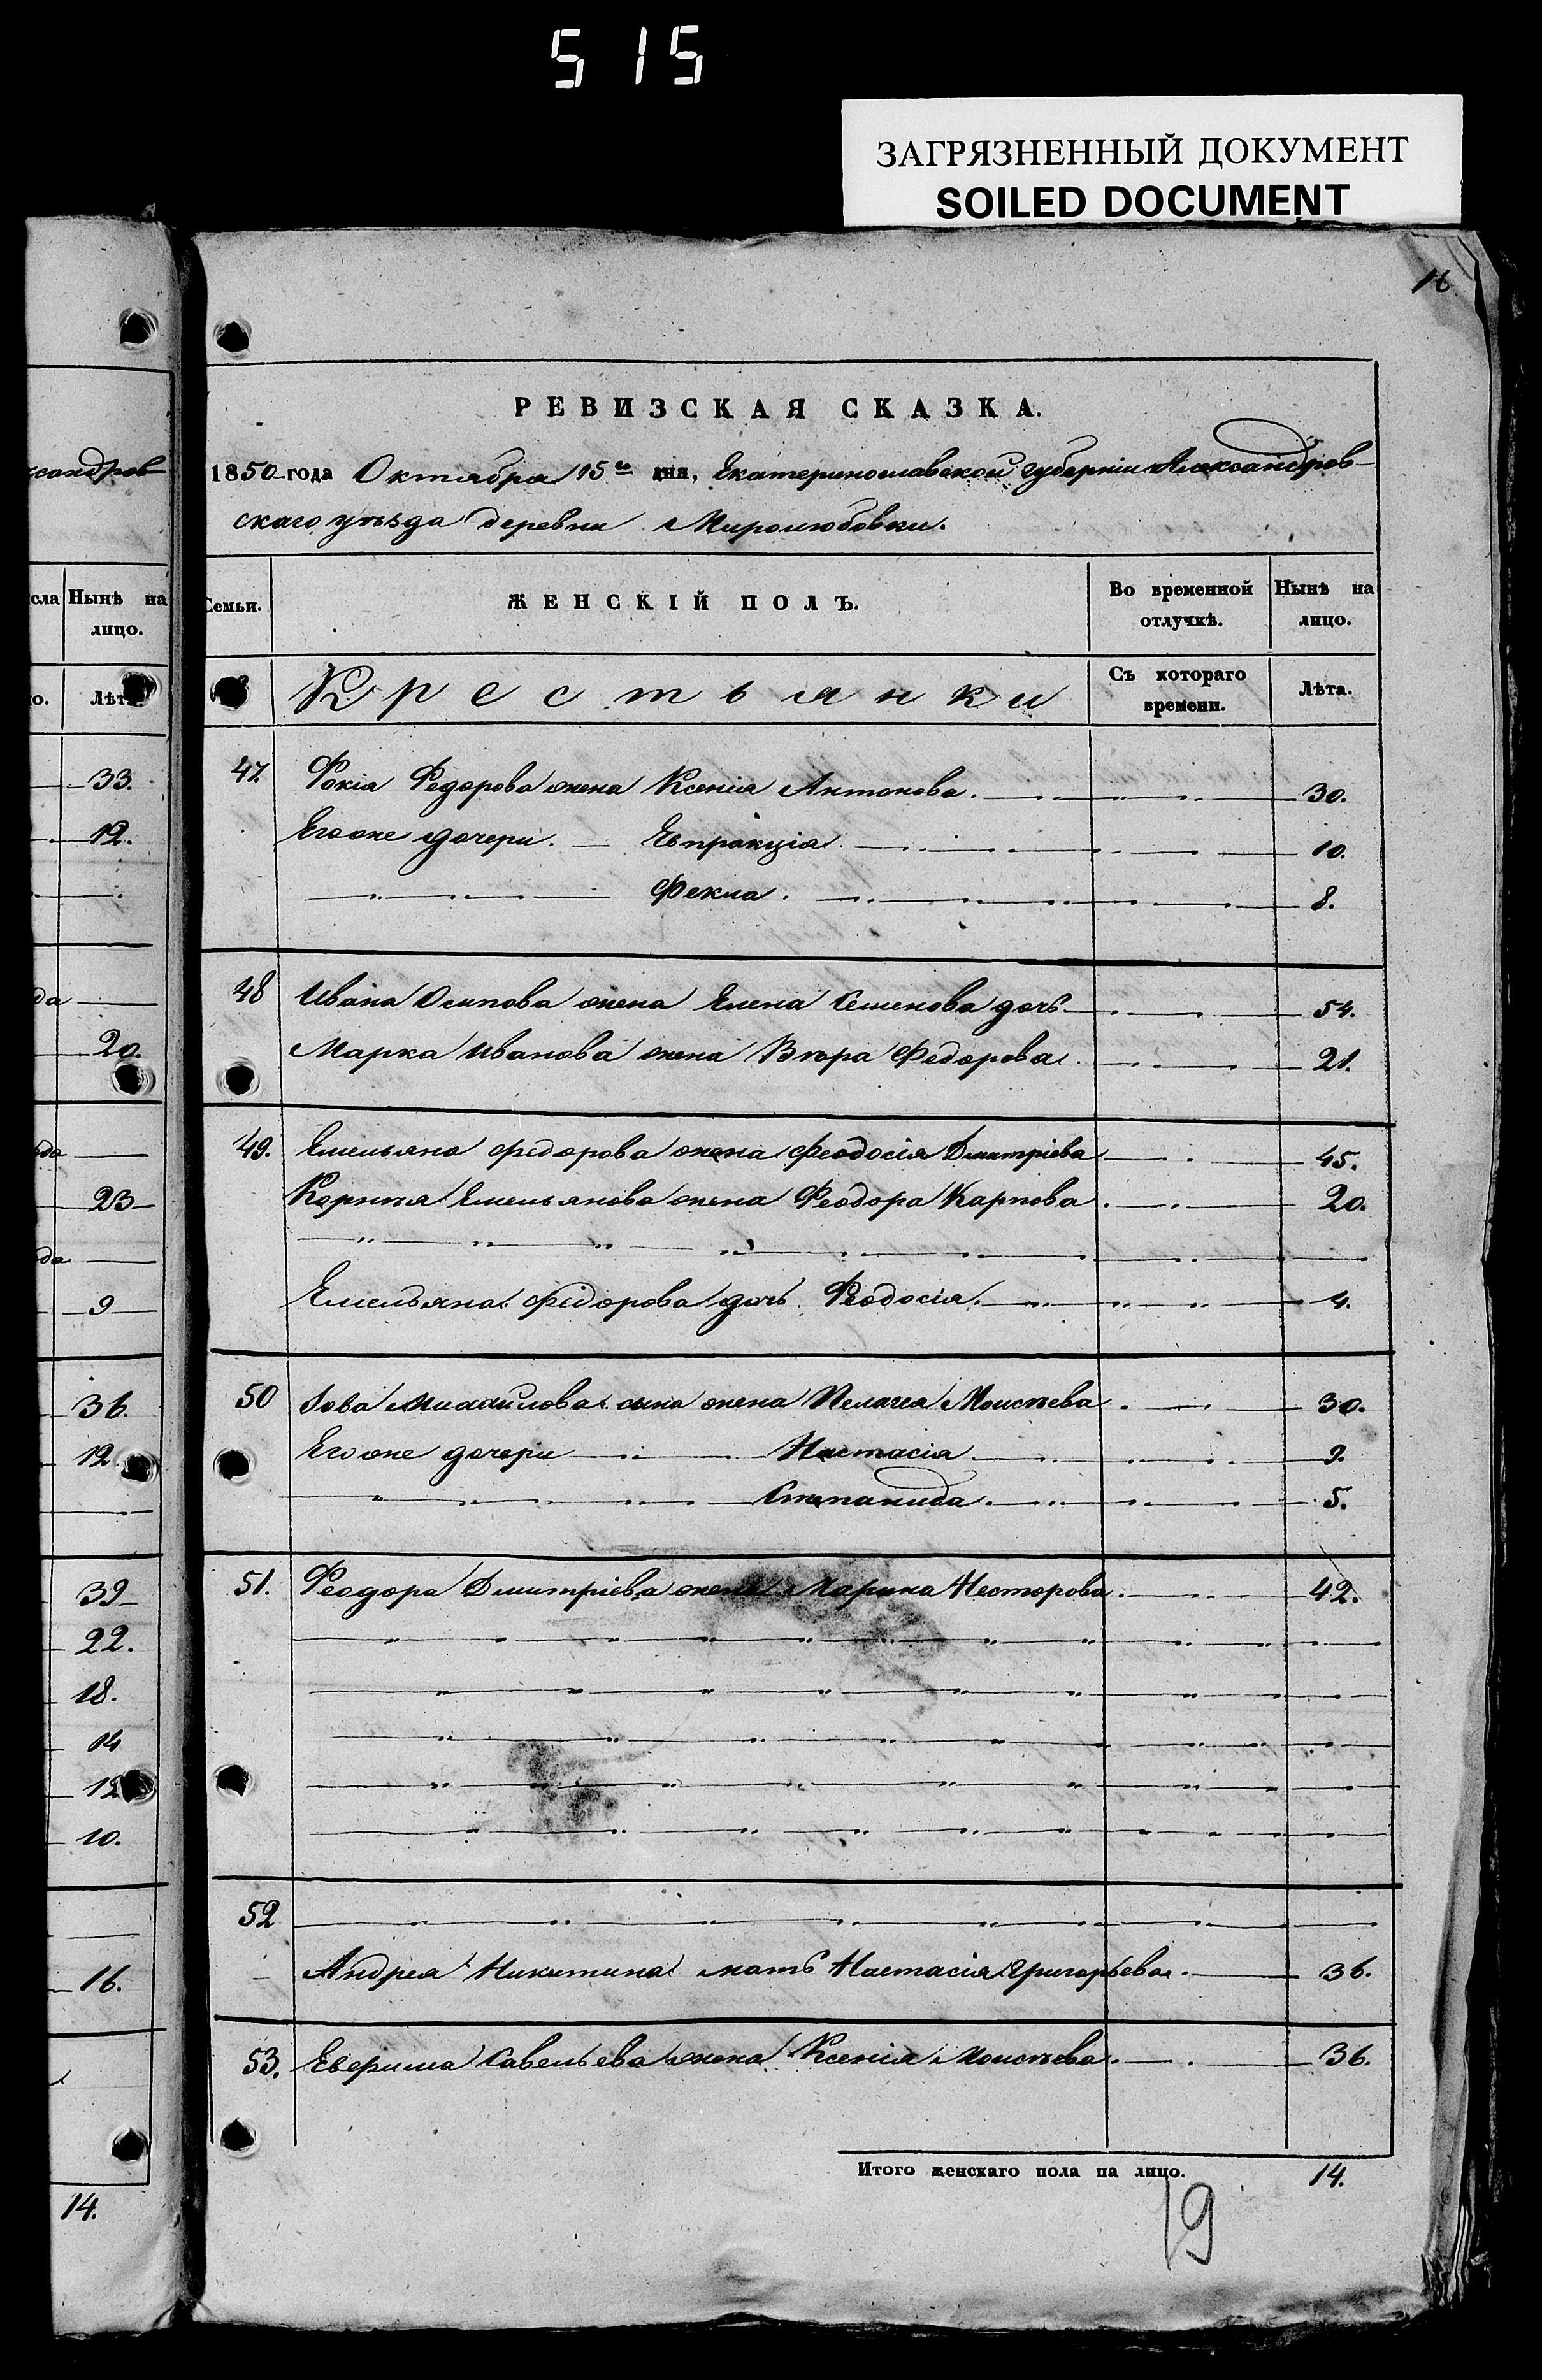 515
ЗАГРЯЗНЕННЫЙ ДОКУМЕНТ
SOILED DOCUMENT
16
РЕВИЗСКАЯ СКАЗКА.
1850 года Октября 15го дня, Екатеринославской губерніи Александров-
скаго уѣзда деревни Миролюбовки.
Семьи. ЖЕНСКІЙ ПОЛЪ. Во временной отлучкѣ. Нынѣ на лицо.
Крестьянки Съ котораго времени. Лѣта.
47. Фокія Федорова жена Ксенія Антонова. 30.
Егоже дочери. Евпракція. 10.
" Фекла. 8.
48 Ивана Осипова жена Елена Семенова дочь 54.
Марка Иванова жена Вѣра Федорова. 21.
49. Емельяна Федорова жена Феодосія Дмитріева 45.
Корнѣя Емельянова жена Феодора Карпова 20.
Емельяна Федорова дочь Феодосія. 4.
50 Іова Михайлова сына жена Пелагея Моисѣева 30.
Егоже дочери Настасія 9.
" Степанида. 5.
51. Феодора Дмитріева жена Марина Несторова. 42.
52
Андрея Никитина мать Настасія Григорьева. 36.
53. Савельева жена Ксенія Моисѣева. 36.
Итого женскаго пола на лицо. 14.
19
ксандров-
сла Нынѣ на
лицо.
о. Лѣта.
33.
12.
да
20.
ьда
23
да
9
36.
12
39
22.
18.
14
12
10.
16.
14.